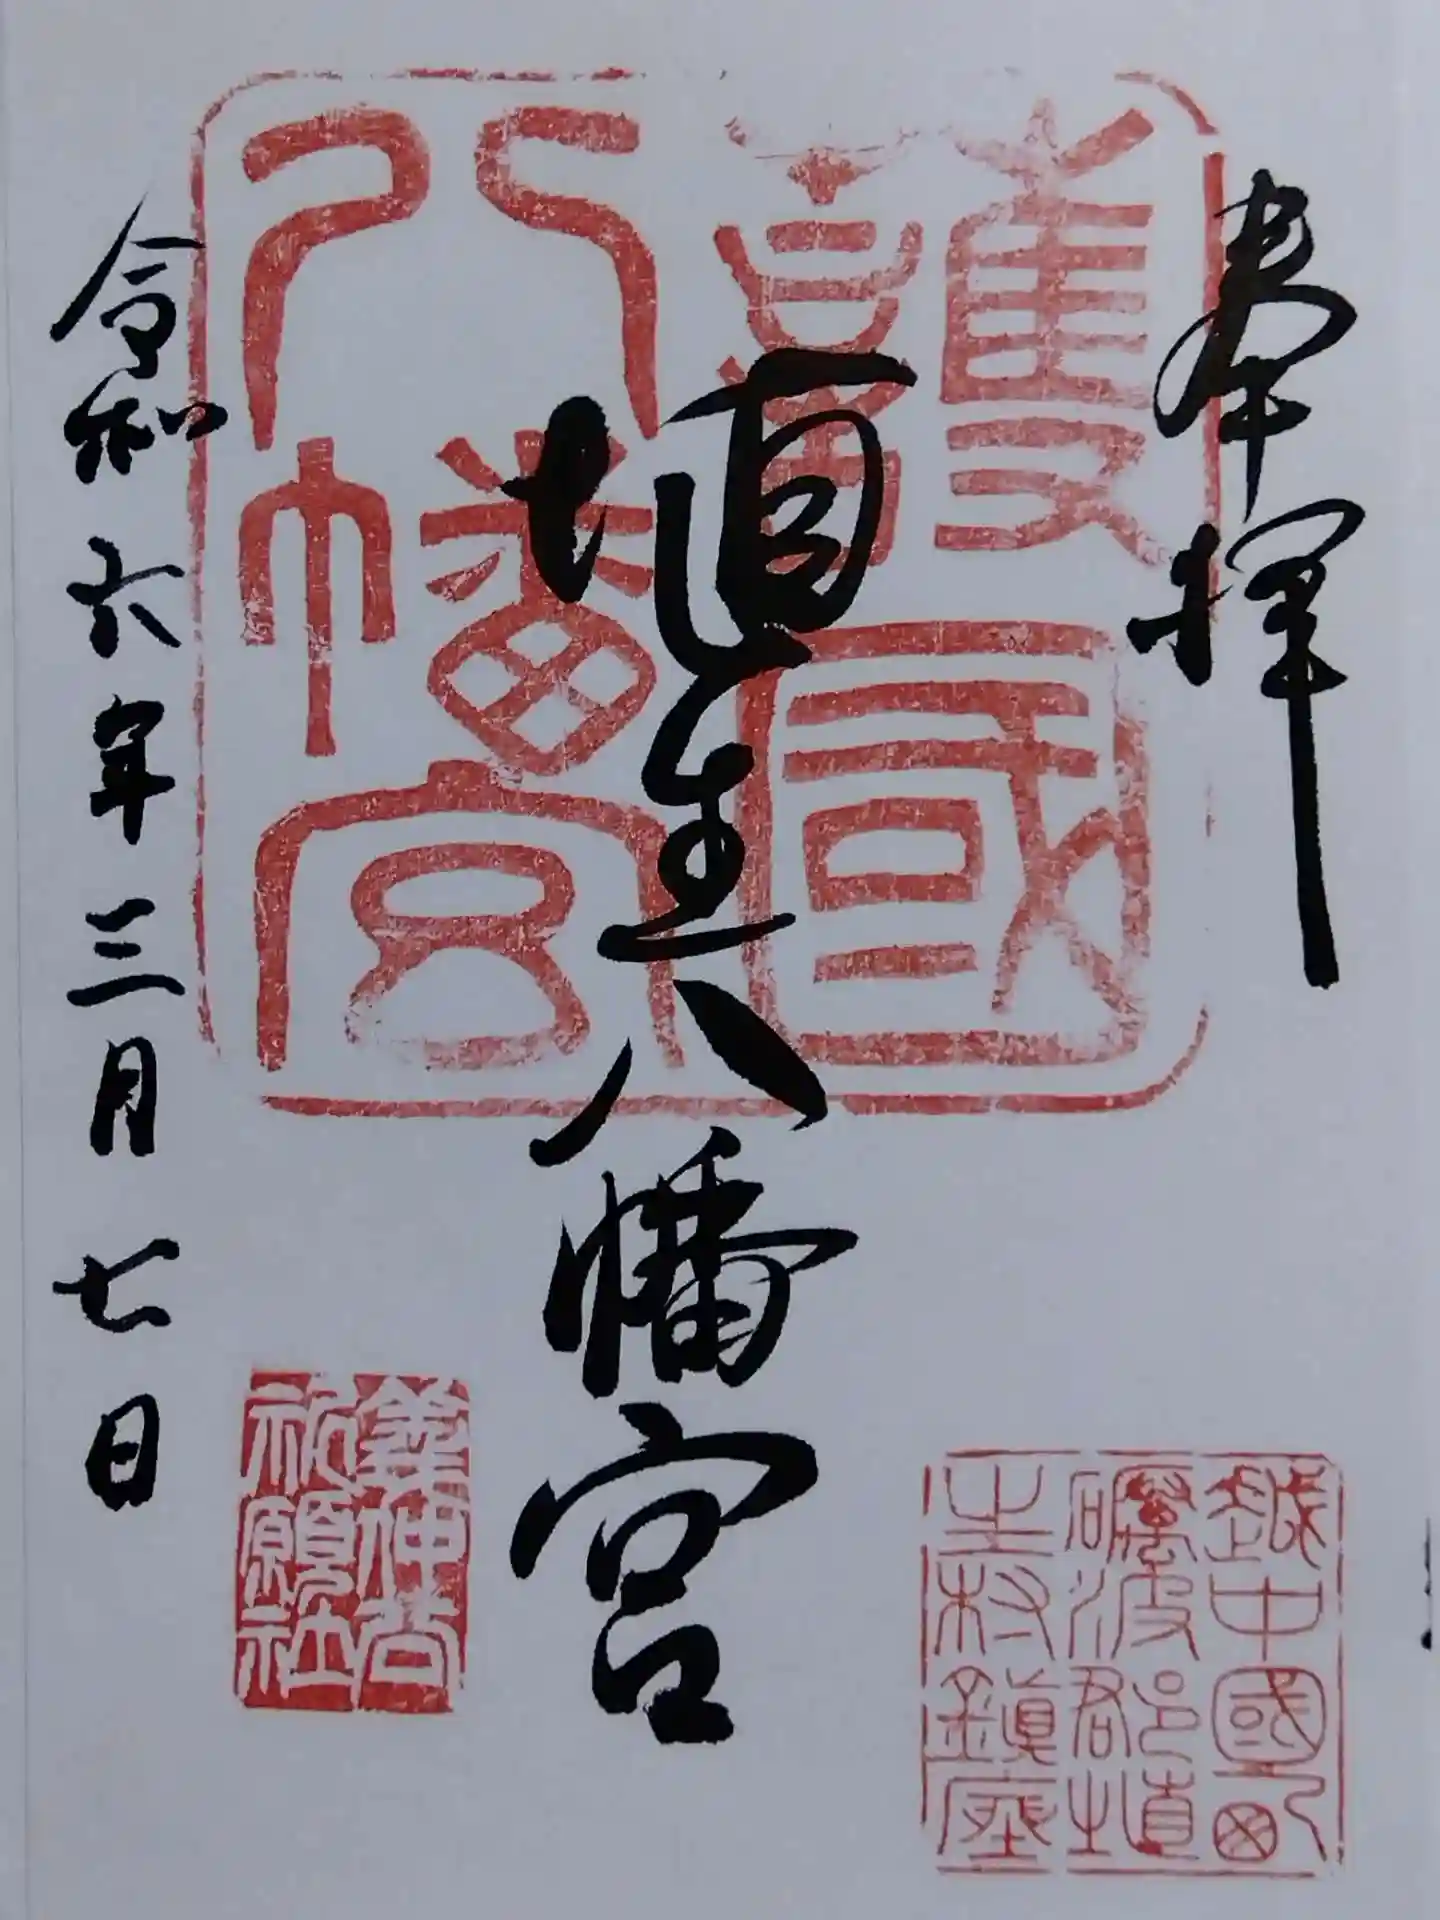 奉拝
護國
八幡宮
埴生八幡宮
令和六年三月七日
越中國西
礪波郡埴
生村鎮座
義仲公
祈願社